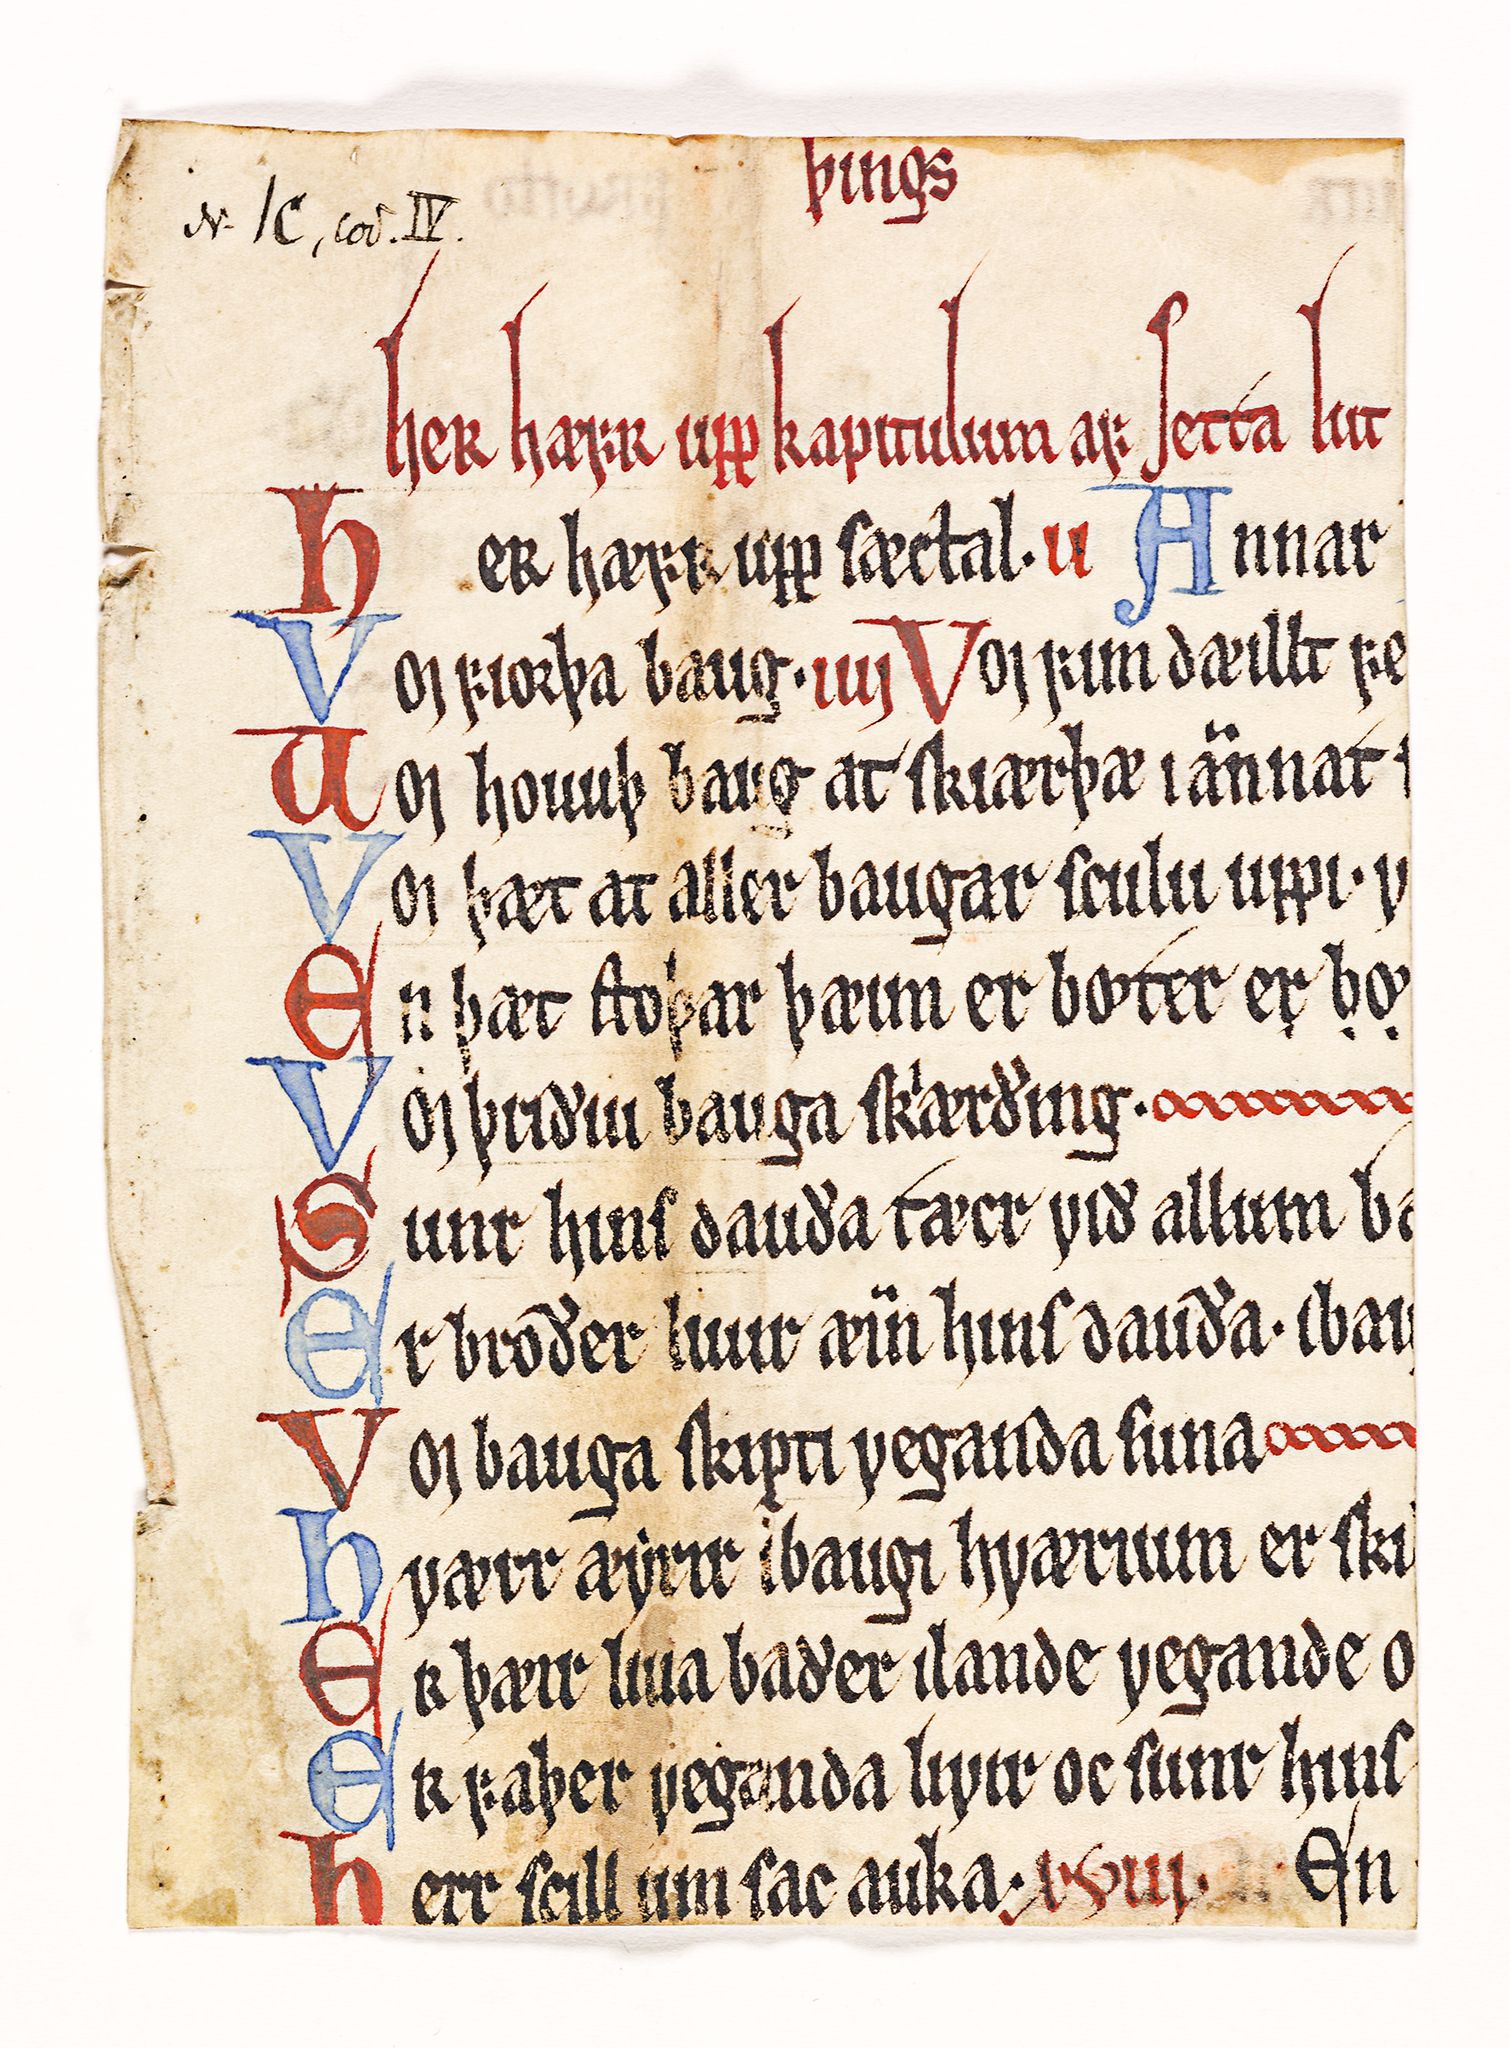 þings
N. 1C, cod. IV.
her hæfr upp kapitulum af setta lut
Her hæfr upp sæctal. ii Annar
Vm fiorþa baug. iiij Vm fim dæillt fe
Um houuþ baug at skiærþæ i annat
Vm þæt at aller baugar sculu uppi. ƿ
En þæt stoþar þæim er bǿter er bø
Vm þriðiu bauga skærðing.
Sunr hins dauða tæcr ƿið allum ba
Er broðer liuir æin hins dauða. ibau
Vm bauga skipti ƿeganda suna
hƿærr æyrir ibaugi hƿærium er ski
ER þæir liua baðer ilande ƿegande o
ER faþer ƿeganda liƿir oc sunr hins
herr scill um sac auka. xviij. En